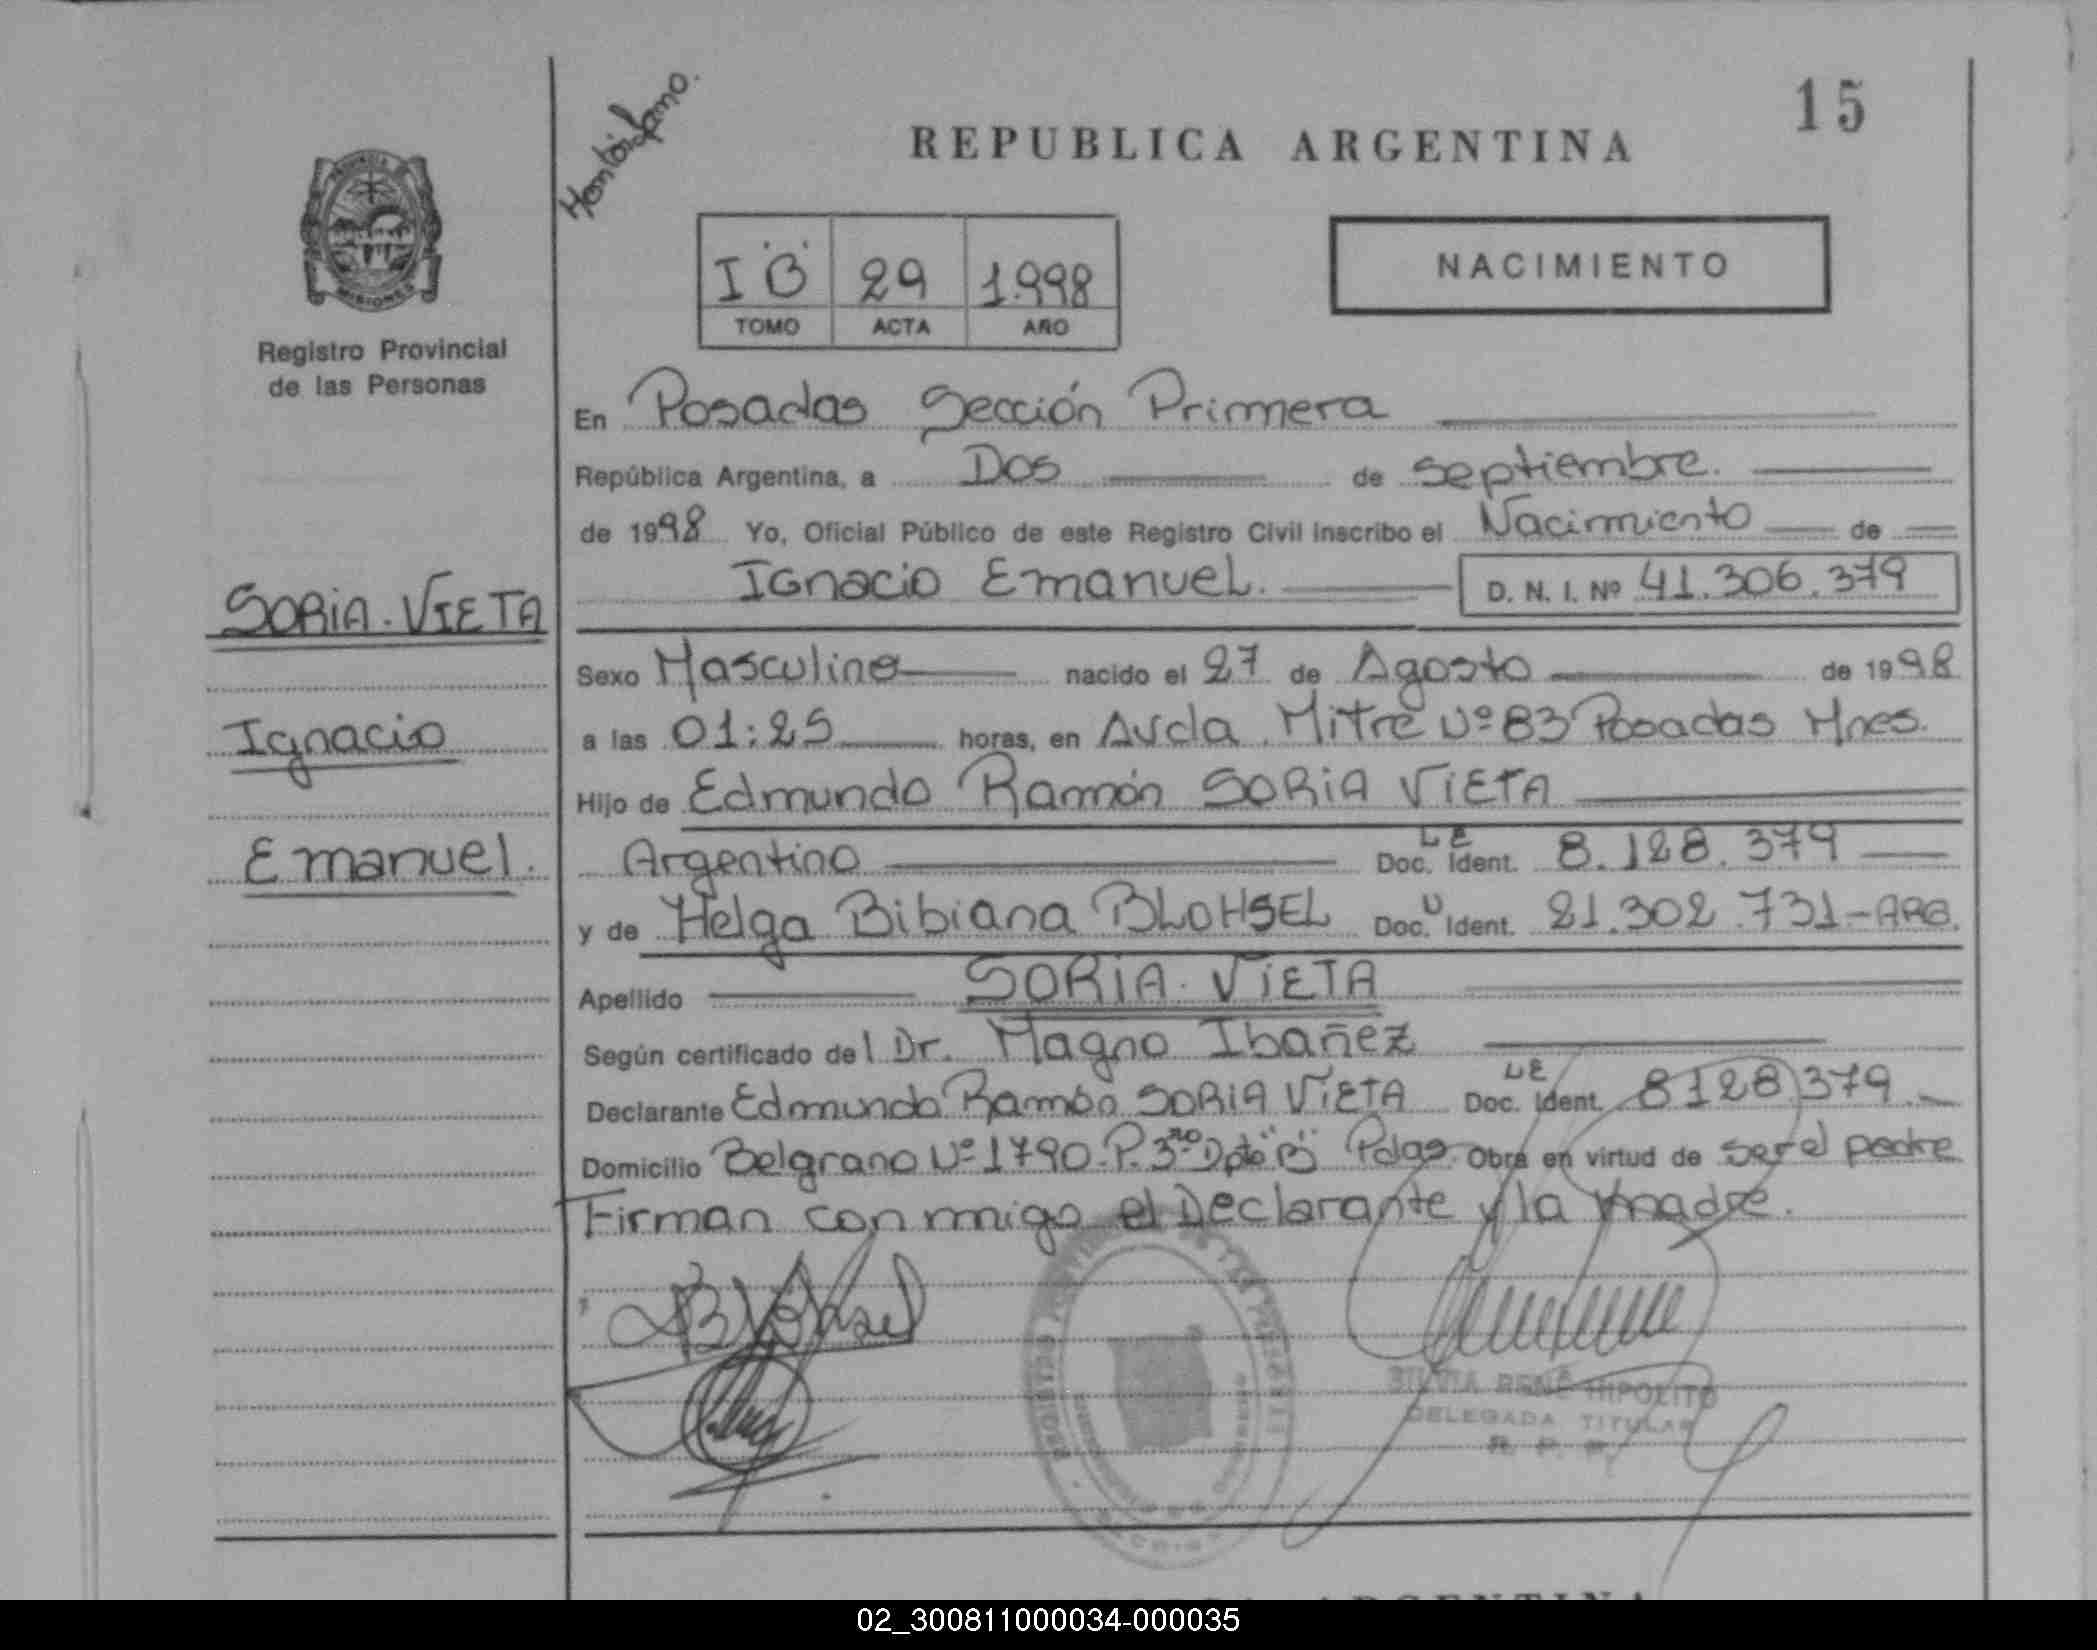 15
REPUBLICA ARGENTINA
NACIMIENTO
I "B" 29 1.998
TOMO ACTA AÑO
MISIONES
Registro Provincial
de las Personas
En Posadas Sección Primera
República Argentina, a Dos de septiembre.
de 1998 Yo, Oficial Público de este Registro Civil inscribo el Nacimiento de
Ignacio Emanuel. D. N. I. Nº 41.306.379
SORIA. VIETA
Ignacio
Emanuel.
Sexo Masculino nacido el 27 de Agosto de 1998
a las 01:25 horas, en Avda. Mitre Nº 83 Posadas Mnes.
Hijo de Edmundo Ramón SORIA VIETA
Argentino LE Doc. Ident. 8.128.379
y de Helga Bibiana BLOHSEL Doc. U Ident. 21.302.731-ARG.
Apellido SORIA. VIETA
Según certificado del Dr. Magno Ibañez
Declarante Edmundo Ramón SORIA VIETA LE Doc. Ident. 8128379
Domicilio Belgrano Nº 1790. P. 3ro Dpto "B" Pdas. Obra en virtud de ser el padre
Firman conmigo el Declarante y la madre.
SILVIA RENÉ HIPOLITO
DELEGADA TITULAR
R. P. P.
02_300811000034-000035